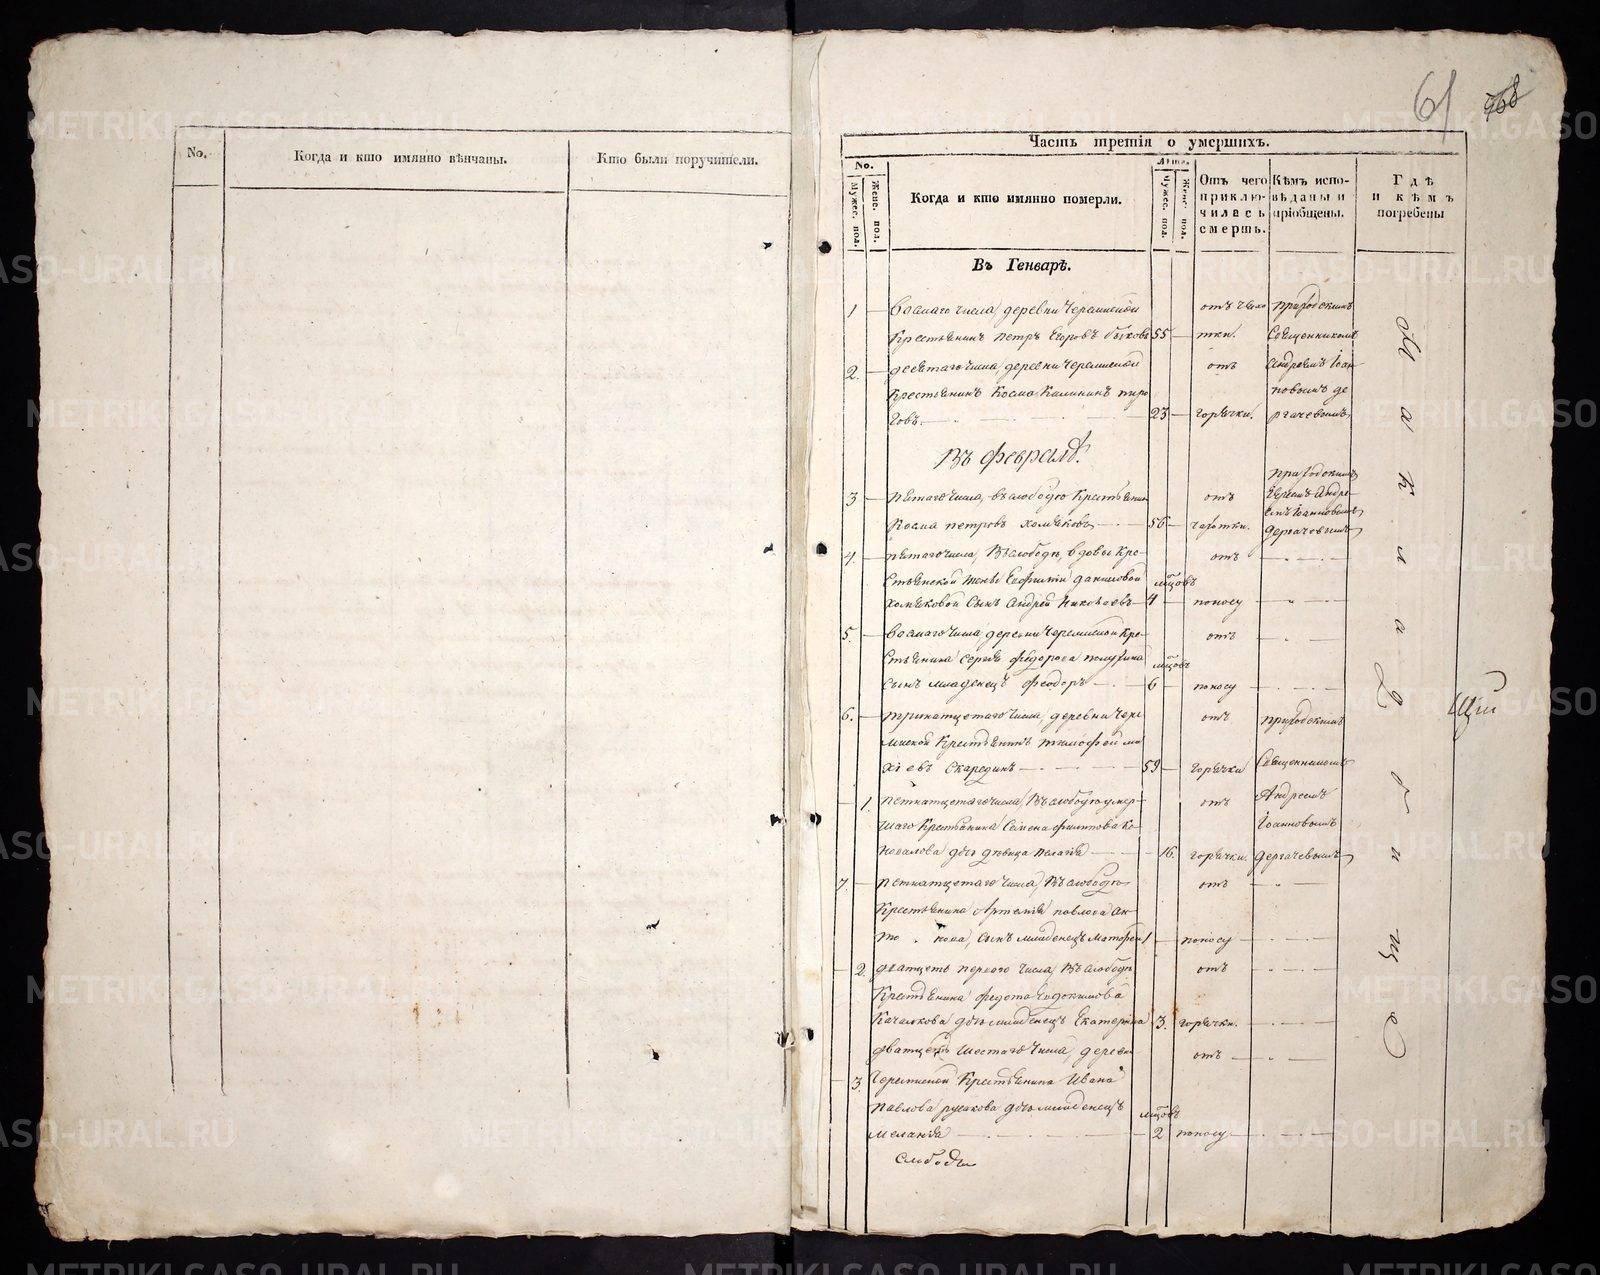 No.
Когда и кто имянно вѣнчаны.
Кто были поручители.
61
Часть третія о умершихъ.
No.
Мужес. пол.
Женс. пол.
Когда и кто имянно померли.
Лѣта.
Мужес. пол.
Женс. пол.
Отъ чего приклю-
чилась смерть.
Кѣмъ испо-
вѣданы и
пріобщены.
Гдѣ
и кѣмъ
погребены
Въ Генварѣ.
1 — восмаго числа, деревни Черемиской
Крестьянинъ Петръ Егоровъ 55 —
отъ чахо
тки.
Приходскимъ
Священникомъ
2. — десятаго числа, деревни Черемиской
Крестьянинъ Косма Калининъ Пиро
говъ. — 23 —
отъ
горячки.
Андреемъ Іоан
новымъ Де
ргачевымъ
Въ Февралѣ.
3 — пятаго числа, въ слободѣ Крестьянинъ
Косма Петровъ Хомяковъ — 56 —
отъ
чахотки.
приходскимъ
Іереемъ Андре
емъ Іоанновымъ
Дергачевымъ
4. — пятаго числа, въ слободѣ, вдовы Кре-
стьянской жены Евфиміи Даниловой
Хомяковой сынъ Андрей Николаевъ — 4 —
мцовъ
отъ
поносу
5. — восмаго числа, деревни Черемиской Кре-
стьянина Сергѣя Федорова
сынъ младенецъ Феодоръ — 6 —
мцовъ
отъ
поносу
6. — тринатцетаго числа, деревни Чере
миской Крестьянинъ Тимофей Ми
хѣевъ Скарединъ — 59 —
отъ
горячки
приходскимъ
Священникомъ
— 1. петнатцетаго числа, въ слободѣ умер-
шаго Крестьянина Семена Филипова Ко-
новалова дочь дѣвица Пелагія — 16.
отъ
горячки.
Андреемъ
Іоанновымъ
Дергачевымъ
7. — петнатцетаго числа, въ слободѣ
Крестьянина Артемія Павлова Ан
то нова, сынъ младенецъ 1 —
отъ
поносу
— 2. дватцеть перваго числа, въ слободѣ
Крестьянина Федота Евдокимова
Качалкова дочь младенецъ Екатерина 3.
отъ
горячки.
— 3. дватцеть шестаго числа, деревни
Черемиской Крестьянина Ивана
Павлова Русакова дочь младенецъ
Меланія — 2
мцовъ
отъ
поносу
Слободы
На кладбищѣ